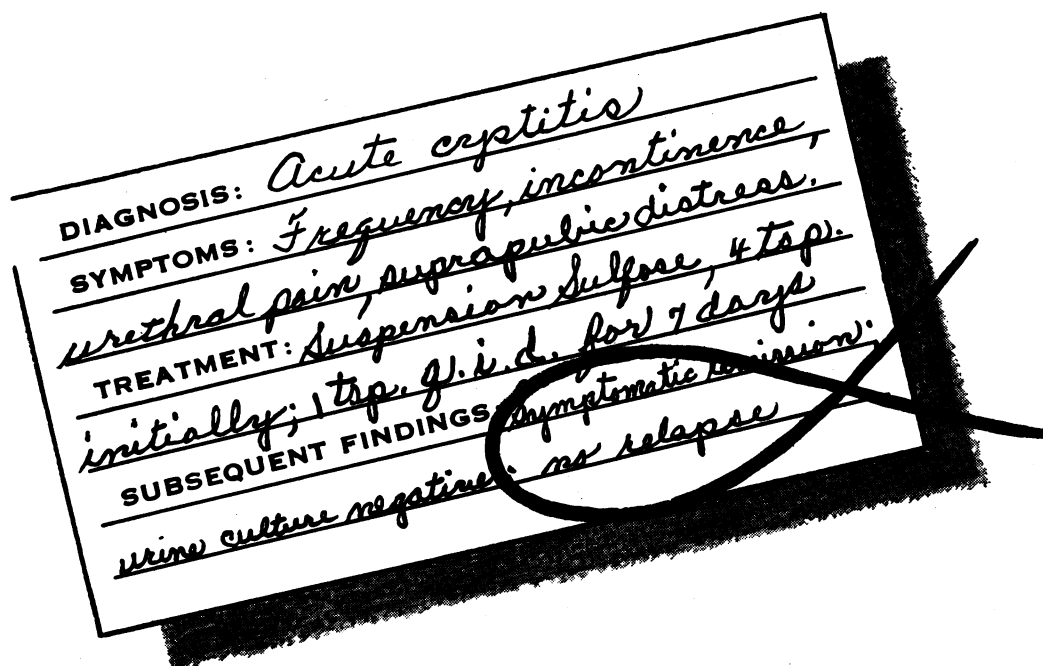 DIAGNOSIS: Acute cystitis
SYMPTOMS: Frequency, incontinence,
urethral pain, suprapubic distress.
TREATMENT: Suspension Sulfose, 4 tsp.
initially; 1 tsp. q.i.d. for 7 days
SUBSEQUENT FINDINGS: Symptomatic remission.
urine culture negative. no relapse